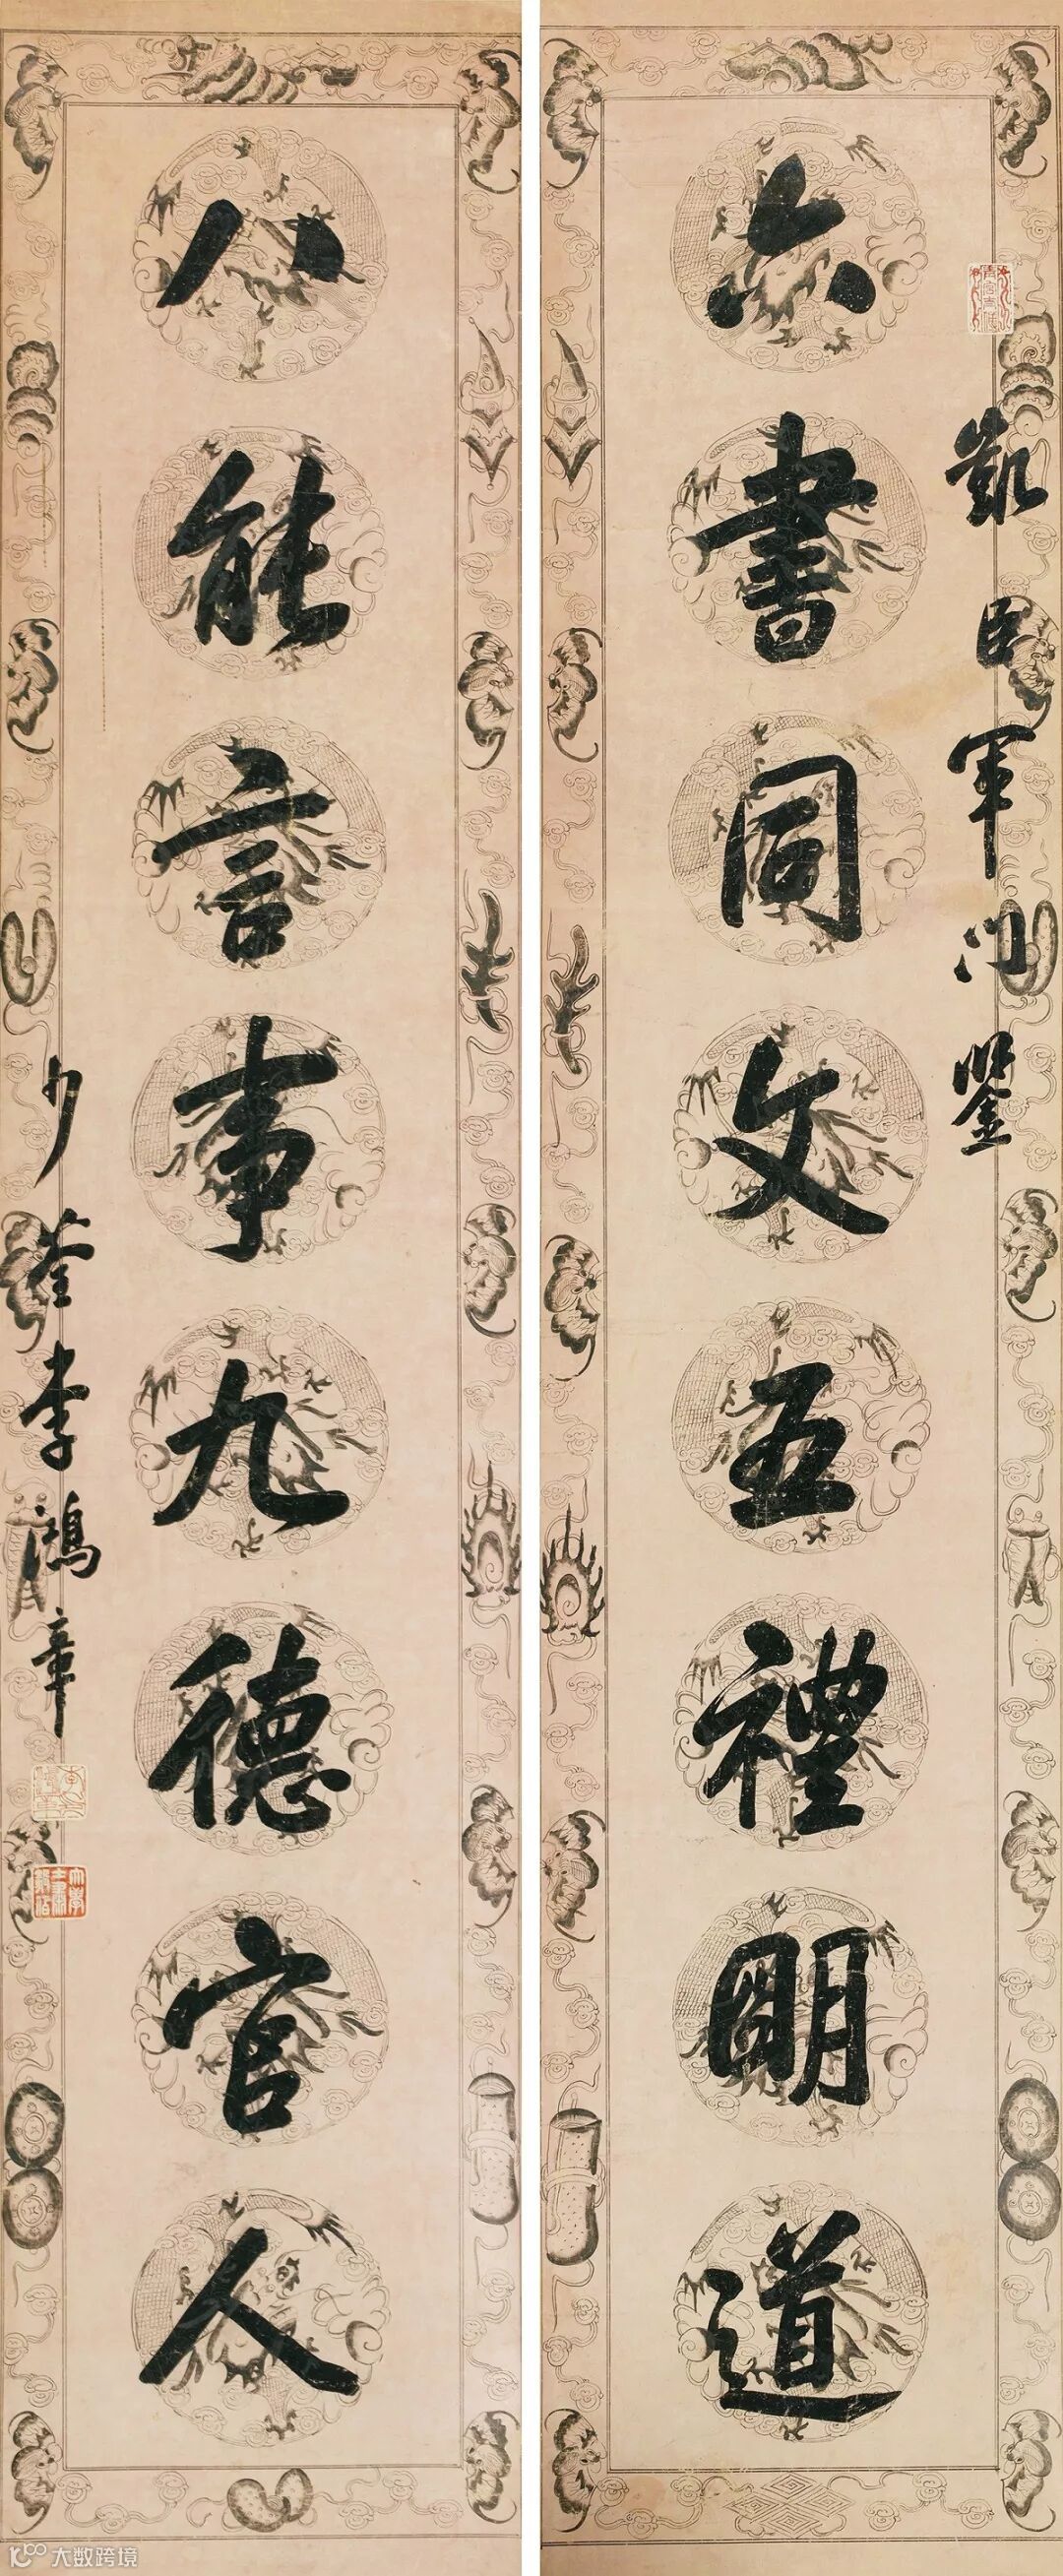 凱臣軍門鑒
六書同文五禮明道
八能言事九德官人
少荃李鴻章
大數跨境